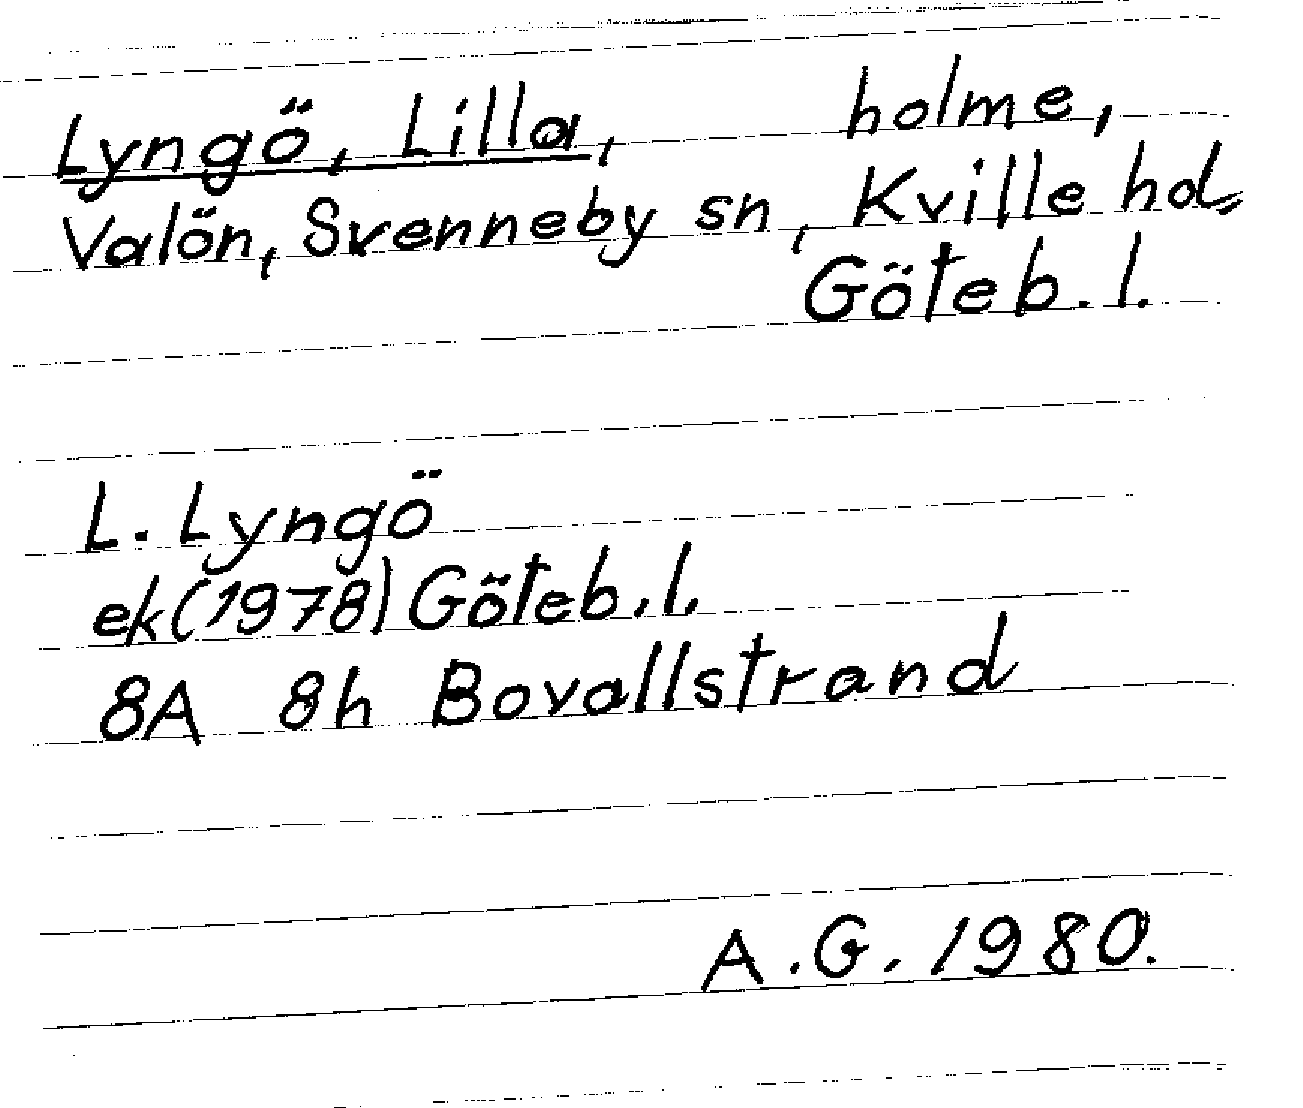 Lyngö, Lilla, holme,
Valön, Svenneby sn, Kville hd,
Göteb. l.
L. Lyngö
ek (1978) Göteb. l.
8A 8h Bovallstrand
A.G. 1980.